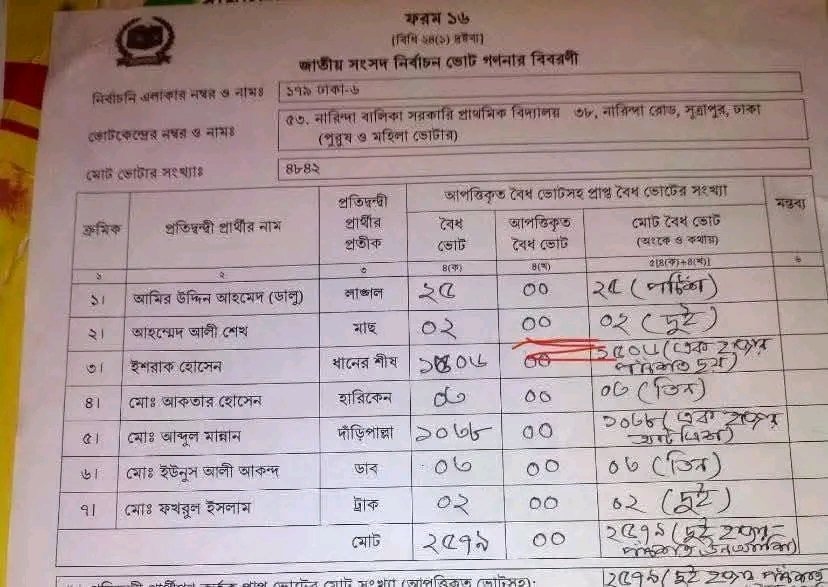 ফরম ১৬
[বিধি ২৪(১) দ্রষ্টব্য]
জাতীয় সংসদ নির্বাচন ভোট গণনার বিবরণী
নির্বাচনি এলাকার নম্বর ও নামঃ ১৭৯ ঢাকা-৬
ভোটকেন্দ্রের নম্বর ও নামঃ ৫৩. নারিন্দা বালিকা সরকারি প্রাথমিক বিদ্যালয় ৩৮, নারিন্দা রোড, সূত্রাপুর, ঢাকা
(পুরুষ ও মহিলা ভোটার)
মোট ভোটার সংখ্যাঃ ৪৮৪২
ক্রমিক প্রতিদ্বন্দ্বী প্রার্থীর নাম প্রতিদ্বন্দ্বী প্রার্থীর প্রতীক আপত্তিকৃত বৈধ ভোটসহ প্রাপ্ত বৈধ ভোটের সংখ্যা মন্তব্য
বৈধ ভোট আপত্তিকৃত বৈধ ভোট মোট বৈধ ভোট (অংকে ও কথায়)
১ ২ ৩ ৪(ক) ৪(খ) ৫[৪(ক)+৪(খ)] ৬
১। আমির উদ্দিন আহমেদ (ডালু) লাঙ্গল ২৫ ০০ ২৫ (পঁচিশ)
২। আহম্মেদ আলী শেখ মাছ ০২ ০০ ০২ (দুই)
৩। ইশরাক হোসেন ধানের শীষ ১৫০৬ ০০ ১৫০৬ (এক হাজার পাঁচশত ছয়)
৪। মোঃ আকতার হোসেন হারিকেন ০৩ ০০ ০৩ (তিন)
৫। মোঃ আব্দুল মান্নান দাঁড়িপাল্লা ১০৩৮ ০০ ১০৩৮ (এক হাজার আটত্রিশ)
৬। মোঃ ইউনুস আলী আকন্দ ডাব ০৩ ০০ ০৩ (তিন)
৭। মোঃ ফখরুল ইসলাম ট্রাক ০২ ০০ ০২ (দুই)
মোট ২৫৭৯ ০০ ২৫৭৯ (দুই হাজার পাঁচশত উনআশি)
২৫৭৯ (দুই হাজার পাঁচশত